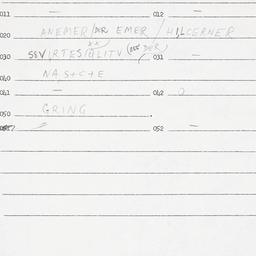 011 — 012 —
020 ANEMER/OR EMER / HILCERNER
030 SEVIRTESIALITY (see DER) 031 —
040 NA, S+C+E
041 — 042 0
050 GRING
052 —